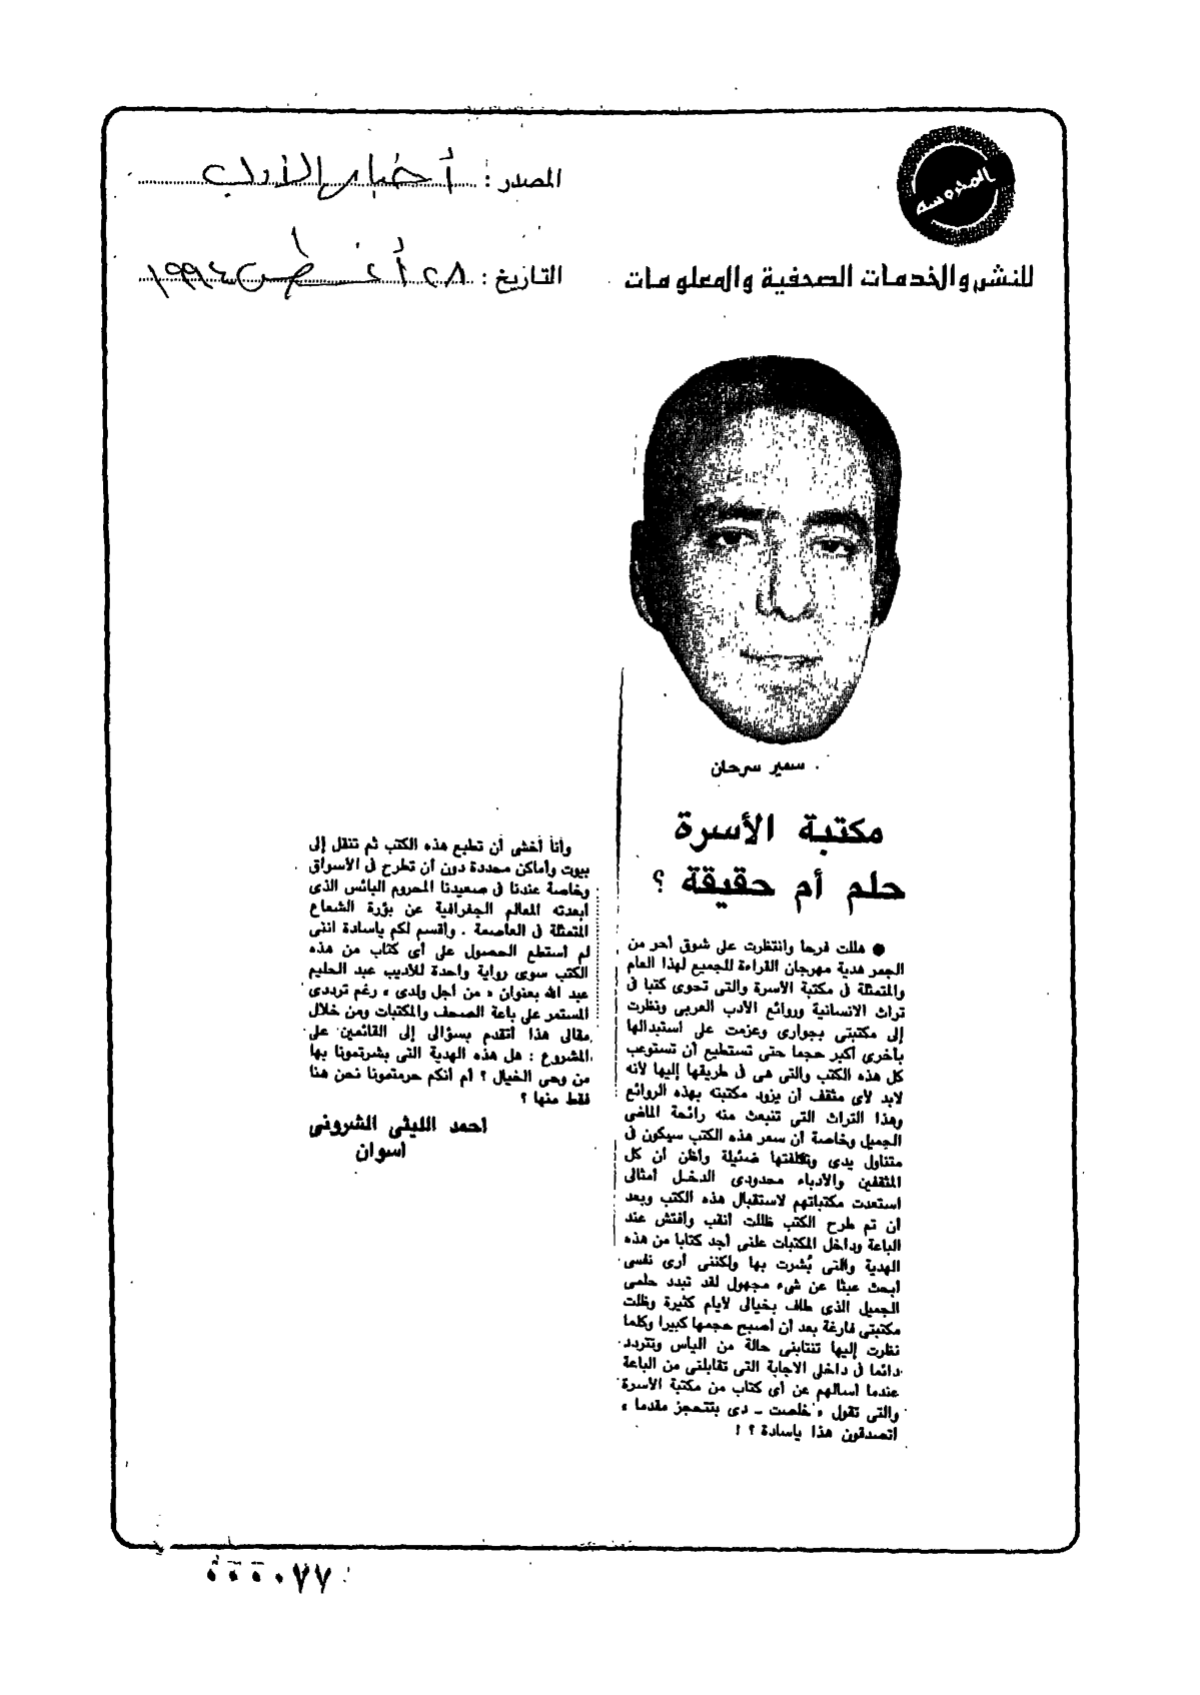 المحروسة
للنشر والخدمات الصحفية والمعلومات
المصدر : أخبار الأدب
التاريخ : ٢٨ أغسطس ١٩٩٤
سمير سرحان
مكتبة الأسرة
حلم أم حقيقة ؟
● هللت فرحا وانتظرت على شوق أحر من
الجمر هدية مهرجان القراءة للجميع لهذا العام
والمتمثلة فى مكتبة الأسرة والتى تحوى كتبا فى
تراث الانسانية وروائع الأدب العربى ونظرت
إلى مكتبتى بجوارى وعزمت على استبدالها
بأخرى أكبر حجما حتى تستطيع أن تستوعب
كل هذه الكتب والتى هى فى طريقها إليها لأنه
لابد لأى مثقف أن يزود مكتبته بهذه الروائع
وهذا التراث التى تنبعث منه رائحة الماضى
الجميل وخاصة أن سعر هذه الكتب سيكون فى
متناول يدى وتكلفتها ضئيلة وأظن أن كل
المثقفين والأدباء محدودى الدخل أمثالى
استعدت مكتباتهم لاستقبال هذه الكتب وبعد
أن تم طرح الكتب ظللت أنقب وأفتش عند
الباعة وداخل المكتبات علنى أجد كتابا من هذه
الهدية والتى بُشرت بها ولكننى أرى نفسى
أبحث عبثا عن شىء مجهول لقد تبدد حلمى
الجميل الذى طاف بخيالى لأيام كثيرة وظلت
مكتبتى فارغة بعد أن أصبح حجمها كبيرا وكلما
نظرت إليها تنتابنى حالة من اليأس وتتردد
دائما فى داخلى الاجابة التى تقابلنى من الباعة
عندما اسالهم عن أى كتاب من مكتبة الأسرة
والتى تقول « خلصت ـ دى بتتحجز مقدما »
اتصدقون هذا ياسادة ؟ !
وأنا أخشى أن تطبع هذه الكتب ثم تنقل إلى
بيوت وأماكن محددة دون أن تطرح فى الأسواق
وخاصة عندنا فى صعيدنا المحروم البائس الذى
أبعدته المعالم الجغرافية عن بؤرة الشعاع
المتمثلة فى العاصمة . واقسم لكم ياسادة اننى
لم أستطع الحصول على أى كتاب من هذه
الكتب سوى رواية واحدة للأديب عبد الحليم
عبد الله بعنوان « من أجل ولدى » رغم ترددى
المستمر على باعة الصحف والمكتبات ومن خلال
مقالى هذا أتقدم بسؤالى إلى القائمين على
المشروع : هل هذه الهدية التى بشرتمونا بها
من وحى الخيال ؟ أم أنكم حرمتمونا نحن هنا
فقط منها ؟
احمد الليثى الشرونى
اسوان
٥٥٥٠٧٧